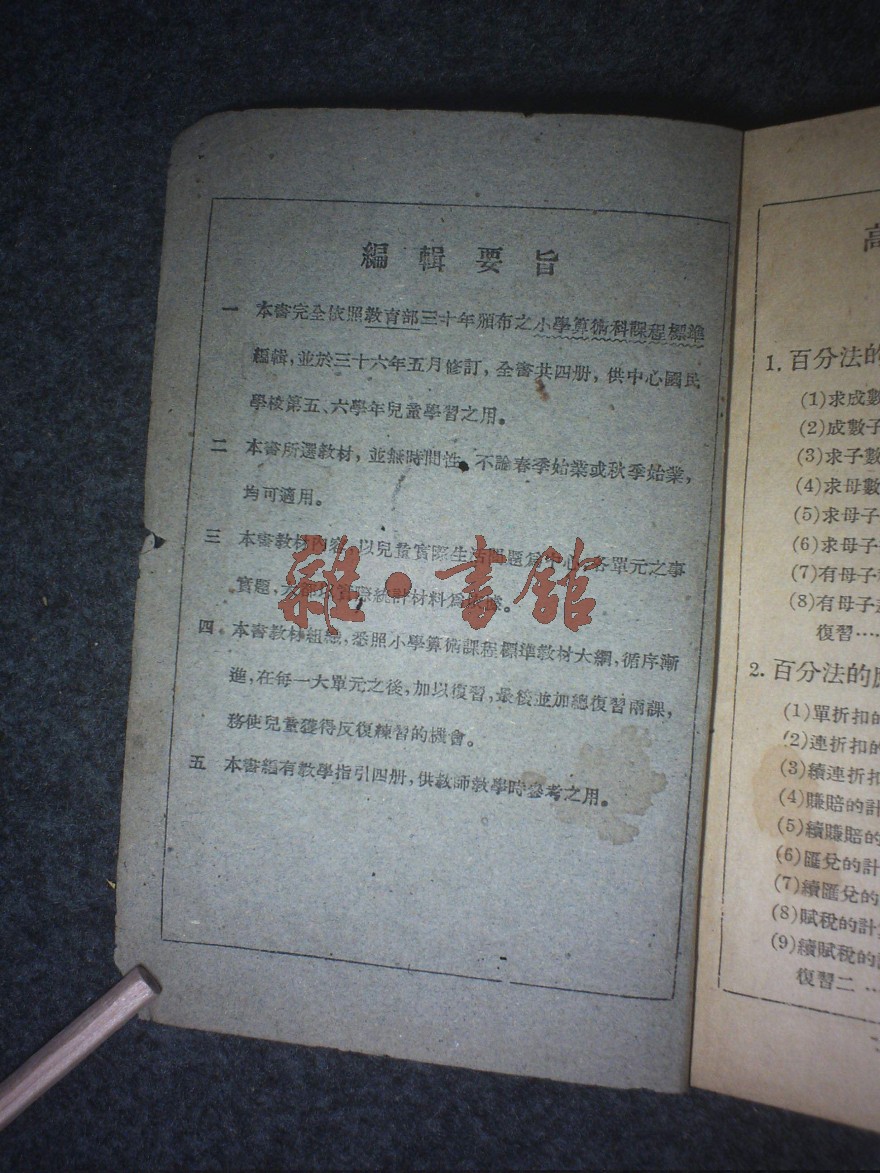 編輯要旨
一 本書完全依照教育部三十年頒布之小學算術科課程標準
編輯，並於三十六年五月修訂，全書共四册，供中心國民
學校第五、六學年兒童學習之用。
二 本書所選教材，並無時間性，不論春季始業或秋季始業，
均可適用。
三 本書教材內容，以兒童實際生活問題爲中心，各單元之事
實題，大部以實際統計材料爲依據。
四 本書教材組織，悉照小學算術課程標準教材大綱，循序漸
進，在每一大單元之後，加以復習，最後並加總復習兩課，
務使兒童獲得反復練習的機會。
五 本書編有教學指引四册，供教師教學時參考之用。
雜·書館
高
1. 百分法的
(1)求成數
(2)成數子
(3)求子數
(4)求母數
(5)求母子
(6)求母子
(7)有母子
(8)有母子差
復習……
2. 百分法的應
(1)單折扣的
(2)連折扣的
(3)續連折扣
(4)賺賠的計
(5)續賺賠的
(6)匯兌的計
(7)續匯兌的
(8)賦稅的計
(9)續賦稅的
復習二…